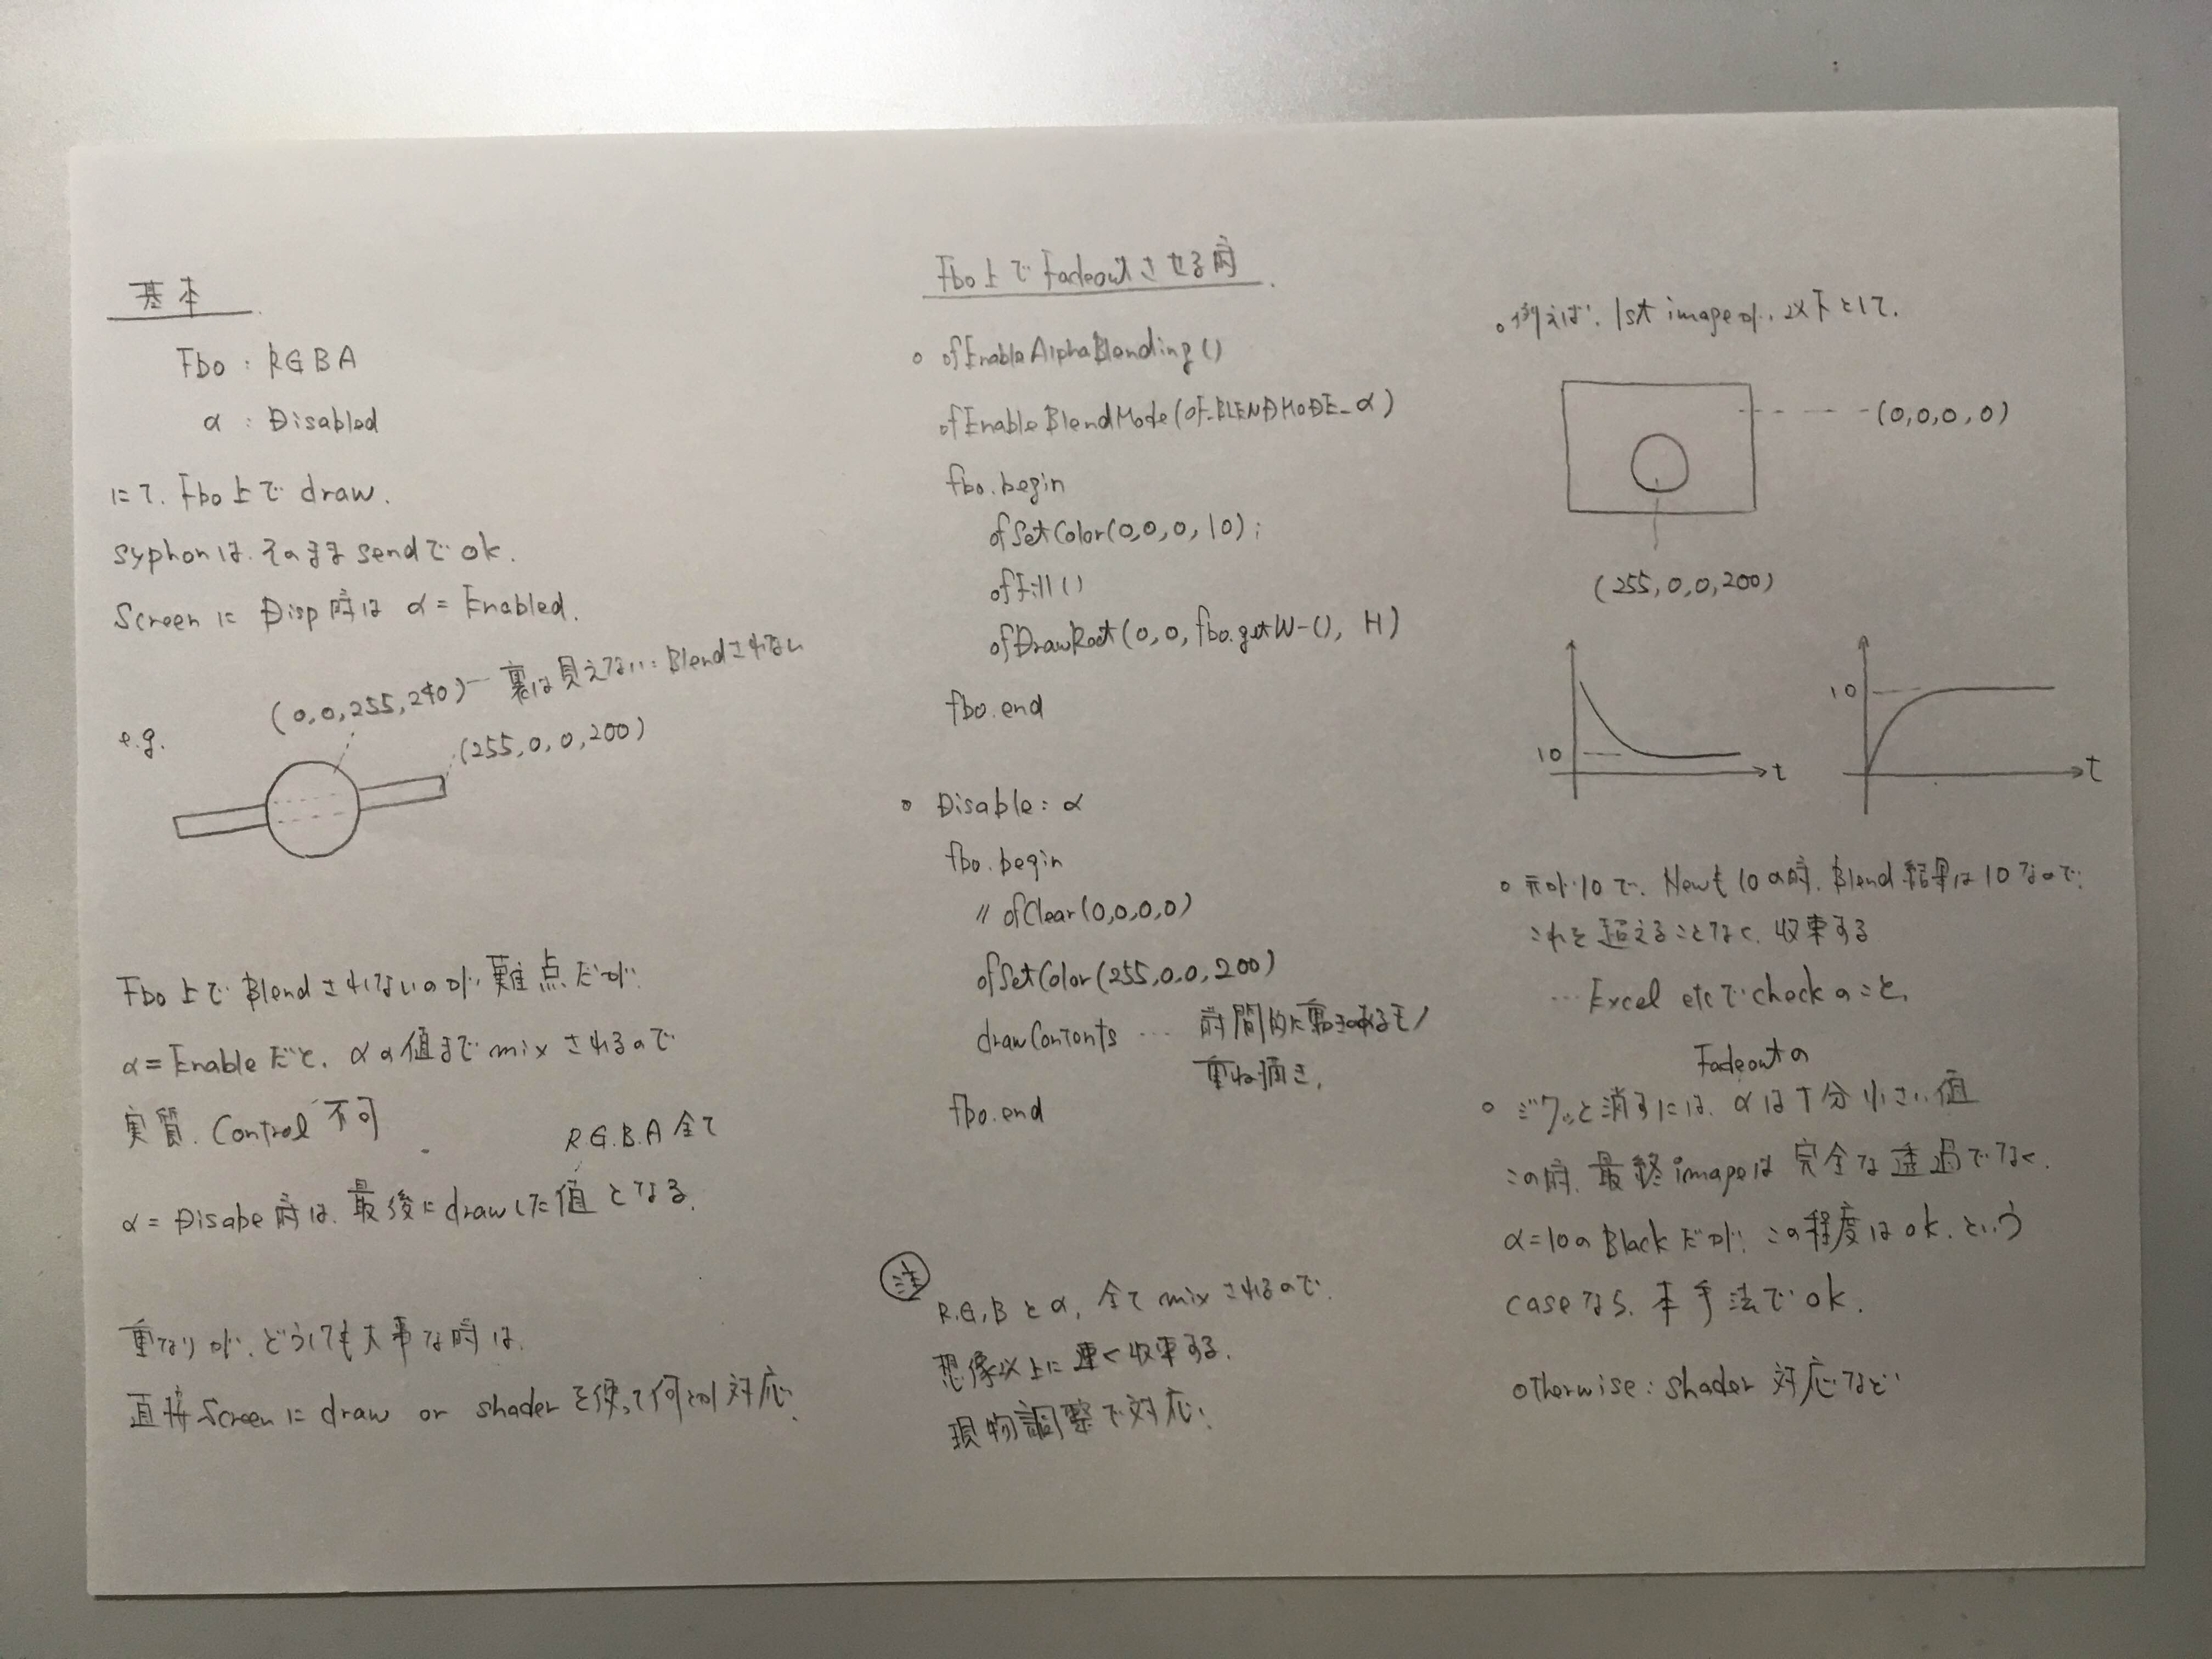 基本
Fbo : RGBA
α : Disabled
にて. Fbo上で draw.
syphonは. そのまま sendで ok.
Screenに Disp時は α = Enabled.
e.g.
(0,0,255,240) … 裏は見えない: Blendされない
(255,0,0,200)
Fbo上で Blendされないのが、難点だが、
α = Enableだと、αの値まで mixされるので
実質. Control 不可
R.G.B.A 全て
α = Disabe時は. 最後に drawした値となる.
重なりが、どうしても大事な時は.
直接Screenに draw or shaderを使って何とか対応.
Fbo上で Fadeoutさせる時
○ ofEnableAlphaBlending()
ofEnableBlendMode(OF_BLENDMODE_α)
fbo.begin
ofSetColor(0,0,0,10);
ofFill()
ofDrawRect(0,0,fbo.getW-(), H)
fbo.end
○ Disable: α
fbo.begin
// ofClear(0,0,0,0)
ofSetColor(255,0,0,200)
drawContents … 時間的に動きのあるモノ
重ね描き.
fbo.end
注
R.G,B と α, 全て mix されるので.
想像以上に速く収束する.
現物調整で対応.
○ 例えば. 1st imageが、以下として.
(0,0,0,0)
(255,0,0,200)
10
t
10
t
○ 元が10で. Newも10の時. Blend結果は10なので.
これを超えることなく、収束する
… Excel etcでcheckのこと、
Fadeoutの
○ ジワっと消すには. αは十分小さい値
この時. 最終imageは完全な透過でなく.
α=10のBlackだが、この程度はok. という
caseなら. 本手法でok.
otherwise: shader 対応など